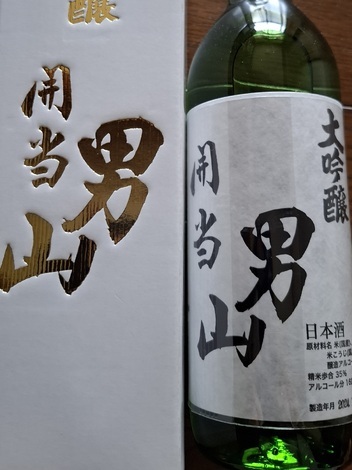 醸
開当
男山
大吟醸
開当
男山
日本酒
原材料名 米(国産)
米こうじ(国
醸造アルコ
精米歩合 35%
アルコール分 16
製造年月 2024